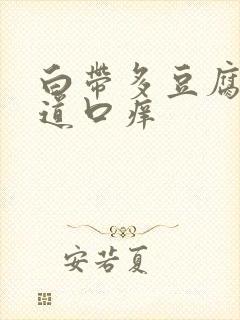 白带多豆腐
道口痒
安若夏